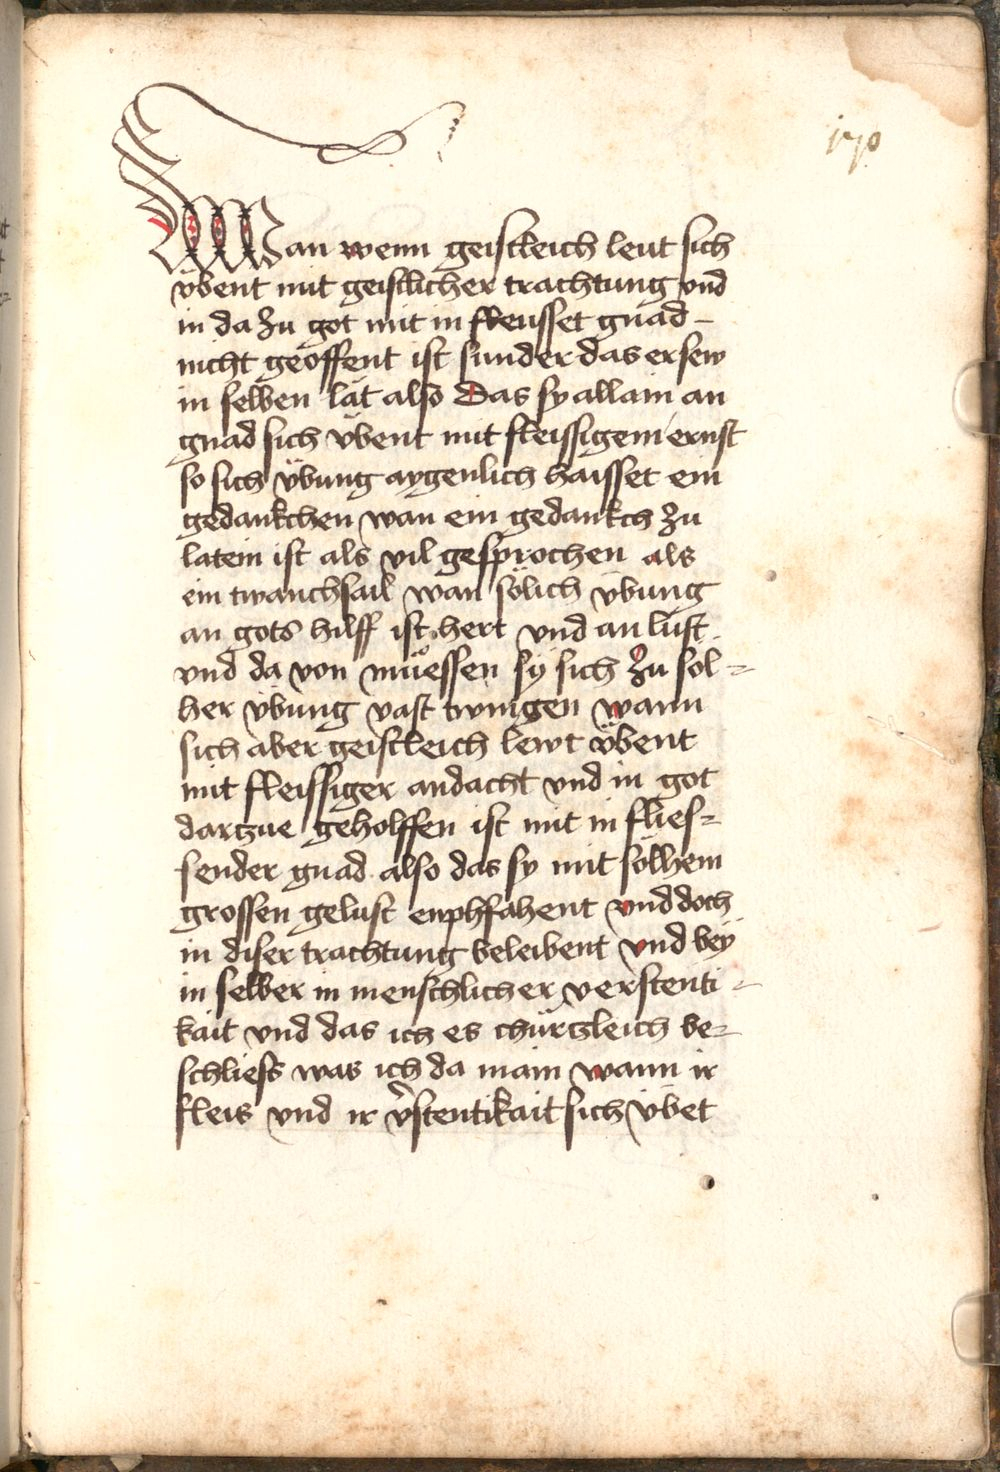 170
Wan wenn geistleich leut sich
vbent mit geistlicher trachtung vnd
in da zu got mit in fleusset gnad
nicht geoffent ist sunder das er sew
in selben lät also Das sy allain an
gnad sich vbent mit fleissigem ernst
so sich vbung aygenlich haisset ein
gedankchen wan ein gedankch zu
latein ist als vil gesprochen als
ein twanchsail wan sölich vbung
an gots hilff ist hert vnd an lust
vnd da von müessen sÿ sich zu sol-
her vbung vast twingen wann
sich aber geistleich lewt vbent
mit fleissiger andacht vnd in got
dartzue geholffen ist mit in flies-
sender gnad also das sy mit sölhem
grossen gelust enphfahent vnd doch
in diser trachtung beleibent vnd beÿ
in selber in menschlicher verstenti-
kait vnd das ich es chürtzleich be-
schliess was ich da main wann ir
fleis vnd ir v̉stentikait sich vbet